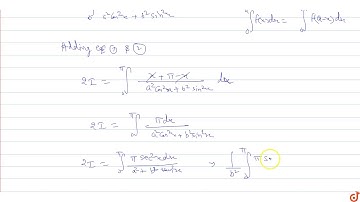 a²cos²x + b²sin²x ∫₀^π f(x)dx = ∫₀^π f(a-x)dx
Adding eq ① & ②
2I = ∫₀^π x + π - x / a²cos²x + b²sin²x dx
2I = ∫₀^π πdx / a²cos²x + b²sin²x
2I = ∫₀^π π sec²x dx / a² + b² tan²x → 1/b² ∫₀^π π se